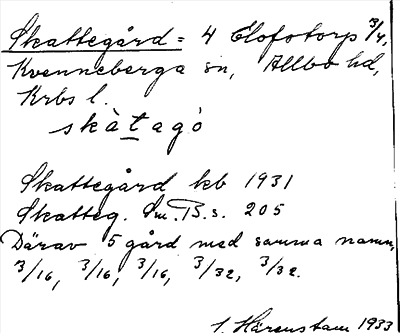 Skattegård = 4 Elofstorp 3/4,
Kvenneberga sn, Allbo hd,
Krbs l.
skàtagò
Skattegård kb 1931
Skatteg. Sm.B.s. 205
Därav 5 gård med samma namn,
3/16, 3/16, 3/16, 3/32, 3/32.
I. Härenstam 1933